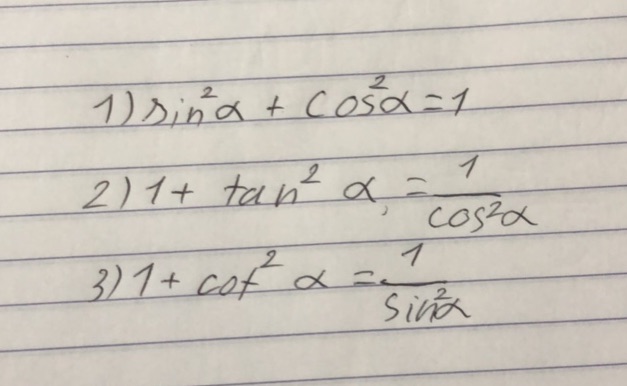 1) sin²α + cos²α = 1
2) 1 + tan² α, = 1/cos²α
3) 1 + cot² α = 1/sin²α